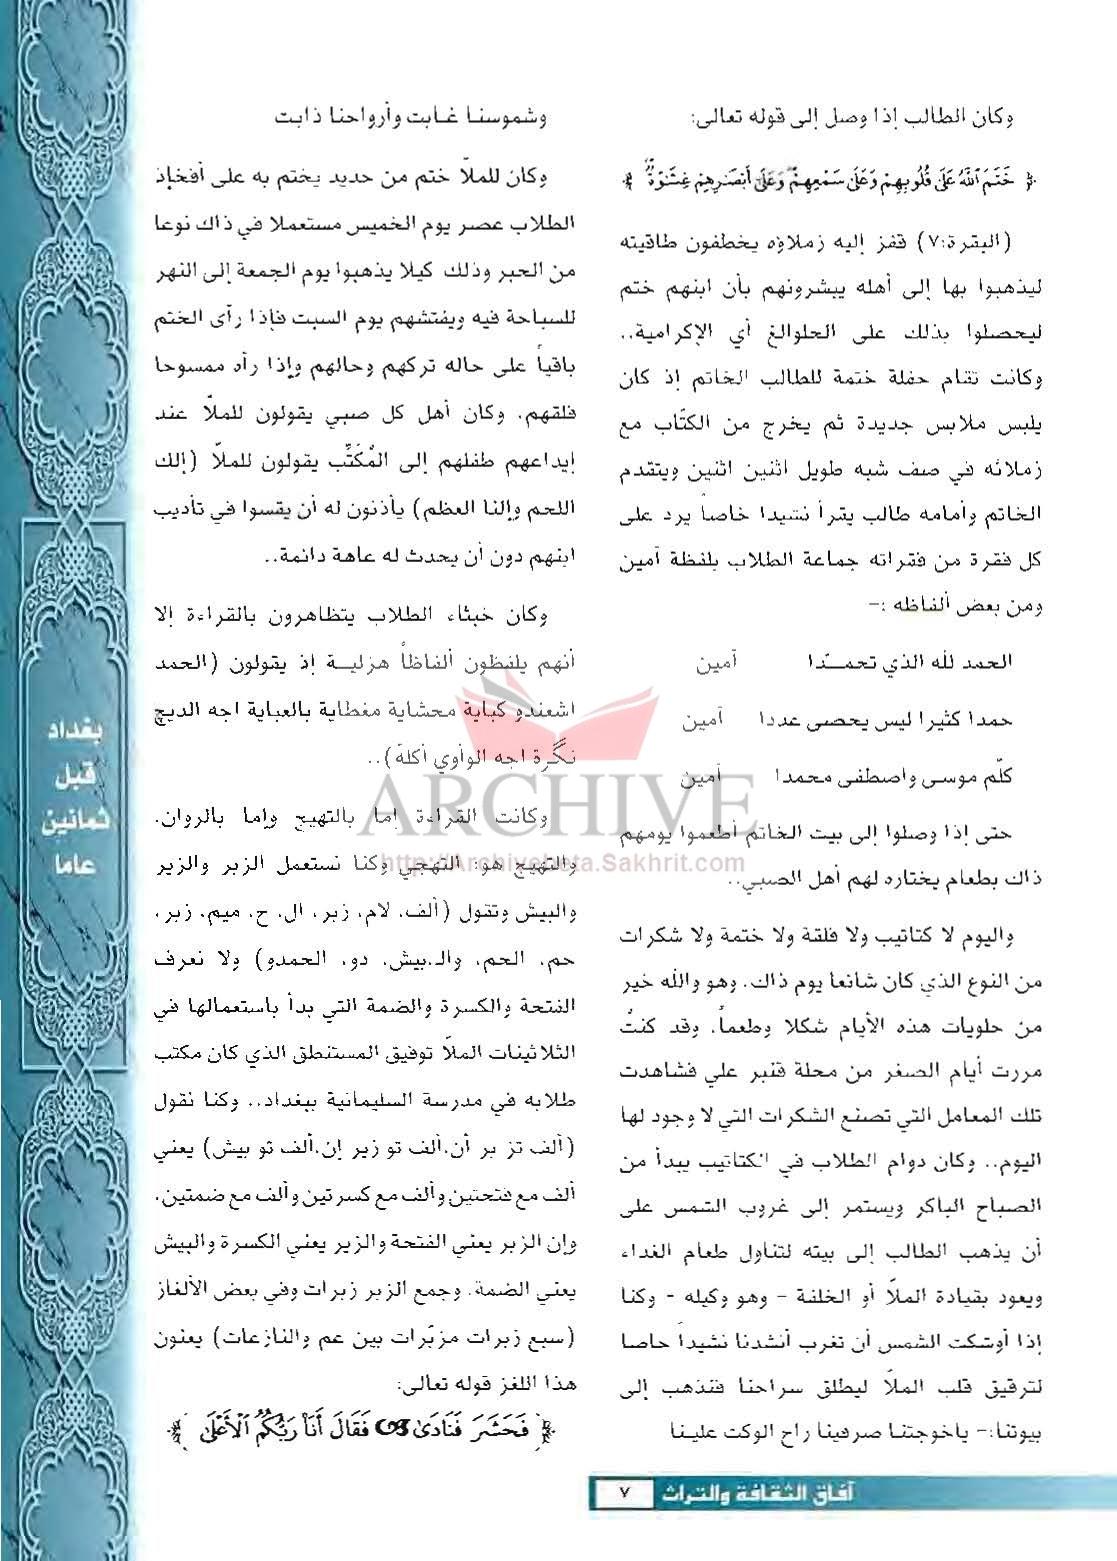 وكان الطالب إذا وصل إلى قوله تعالى:
﴿ خَتَمَ اللَّهُ عَلَىٰ قُلُوبِهِمْ وَعَلَىٰ سَمْعِهِمْ وَعَلَىٰ أَبْصَارِهِمْ غِشَاوَةٌ ﴾
(البقرة:٧) قفز إليه زملاؤه يخطفون طاقيته
ليذهبوا بها إلى أهله يبشرونهم بأن ابنهم ختم
ليحصلوا بذلك على الحلوالغ أي الإكرامية..
وكانت تقام حفلة ختمة للطالب الخاتم إذ كان
يلبس ملابس جديدة ثم يخرج من الكتّاب مع
زملائه في صف شبه طويل اثنين اثنين ويتقدم
الخاتم وأمامه طالب يقرأ نشيدا خاصاً يرد على
كل فقرة من فقراته جماعة الطلاب بلفظة آمين
ومن بعض ألفاظه :-
الحمد لله الذي تحمـــّدا آمين
حمدا كثيرا ليس يحصى عددا آمين
كلّم موسى واصطفى محمدا آمين
حتى إذا وصلوا إلى بيت الخاتم أطعموا يومهم
ذاك بطعام يختاره لهم أهل الصبي..
واليوم لا كتاتيب ولا فلقة ولا ختمة ولا شكرات
من النوع الذي كان شائعا يوم ذاك. وهو والله خير
من حلويات هذه الأيام شكلا وطعماً، وقد كنتُ
مررت أيام الصغر من محلة قنبر علي فشاهدت
تلك المعامل التي تصنع الشكرات التي لا وجود لها
اليوم.. وكان دوام الطلاب في الكتاتيب يبدأ من
الصباح الباكر ويستمر إلى غروب الشمس على
أن يذهب الطالب إلى بيته لتناول طعام الغداء
ويعود بقيادة الملاّ أو الخلفة - وهو وكيله - وكنا
إذا أوشكت الشمس أن تغرب أنشدنا نشيداً خاصا
لترقيق قلب الملاّ ليطلق سراحنا فنذهب إلى
بيوتنا:- ياخوجتنـا صرفينا راح الوكت علينـا
وشموسنـا غـابت وأرواحنـا ذابت
وكان للملاّ ختم من حديد يختم به على أفخاذ
الطلاب عصر يوم الخميس مستعملا في ذاك نوعا
من الحبر وذلك كيلا يذهبوا يوم الجمعة إلى النهر
للسباحة فيه ويفتشهم يوم السبت فإذا رأى الختم
باقياً على حاله تركهم وحالهم وإذا رآه ممسوحا
فلقهم. وكان أهل كل صبي يقولون للملاّ عند
إيداعهم طفلهم إلى المُكَتِّب يقولون للملاّ (إلك
اللحم وإلنا العظم) يأذنون له أن يقسوا في تأديب
ابنهم دون أن يحدث له عاهة دائمة..
وكان خبثاء الطلاب يتظاهرون بالقراءة إلا
أنهم يلفظون ألفاظاً هزليـة إذ يقولون (الحمد
اشعندو كبابة محشاية مغطاية بالعباية اجه الديچ
نگرة اجه الوأوي أكلة)..
وكانت القراءة إما بالتهيج وإما بالروان.
والتهيج هو: التهجي وكنا نستعمل الزبر والزير
والبيش ونقول (ألف، لام، زبر، ال، ح، ميم، زبر،
حم، الحم، والـ،بيش، دو، الحمدو) ولا نعرف
الفتحة والكسرة والضمة التي بدأ باستعمالها في
الثلاثينات الملاّ توفيق المستنطق الذي كان مكتب
طلابه في مدرسة السليمانية ببغداد.. وكنا نقول
(ألف تز بر أن،ألف تو زير إن،ألف تو بيش) يعني
ألف مع فتحتين وألف مع كسرتين وألف مع ضمتين.
وإن الزبر يعني الفتحة والزير يعني الكسرة والبيش
يعني الضمة. وجمع الزبر زبرات وفي بعض الألغاز
(سبع زبرات مزبّرات بين عم والنازعات) يعنون
هذا اللغز قوله تعالى:
﴿ فَحَشَرَ فَنَادَىٰ فَقَالَ أَنَا رَبُّكُمُ الْأَعْلَىٰ ﴾
بغداد
قبل
ثمانين
عاما
ARCHIVE
http://Archivebeta.Sakhrit.com
آفاق الثقافة والتراث ٧